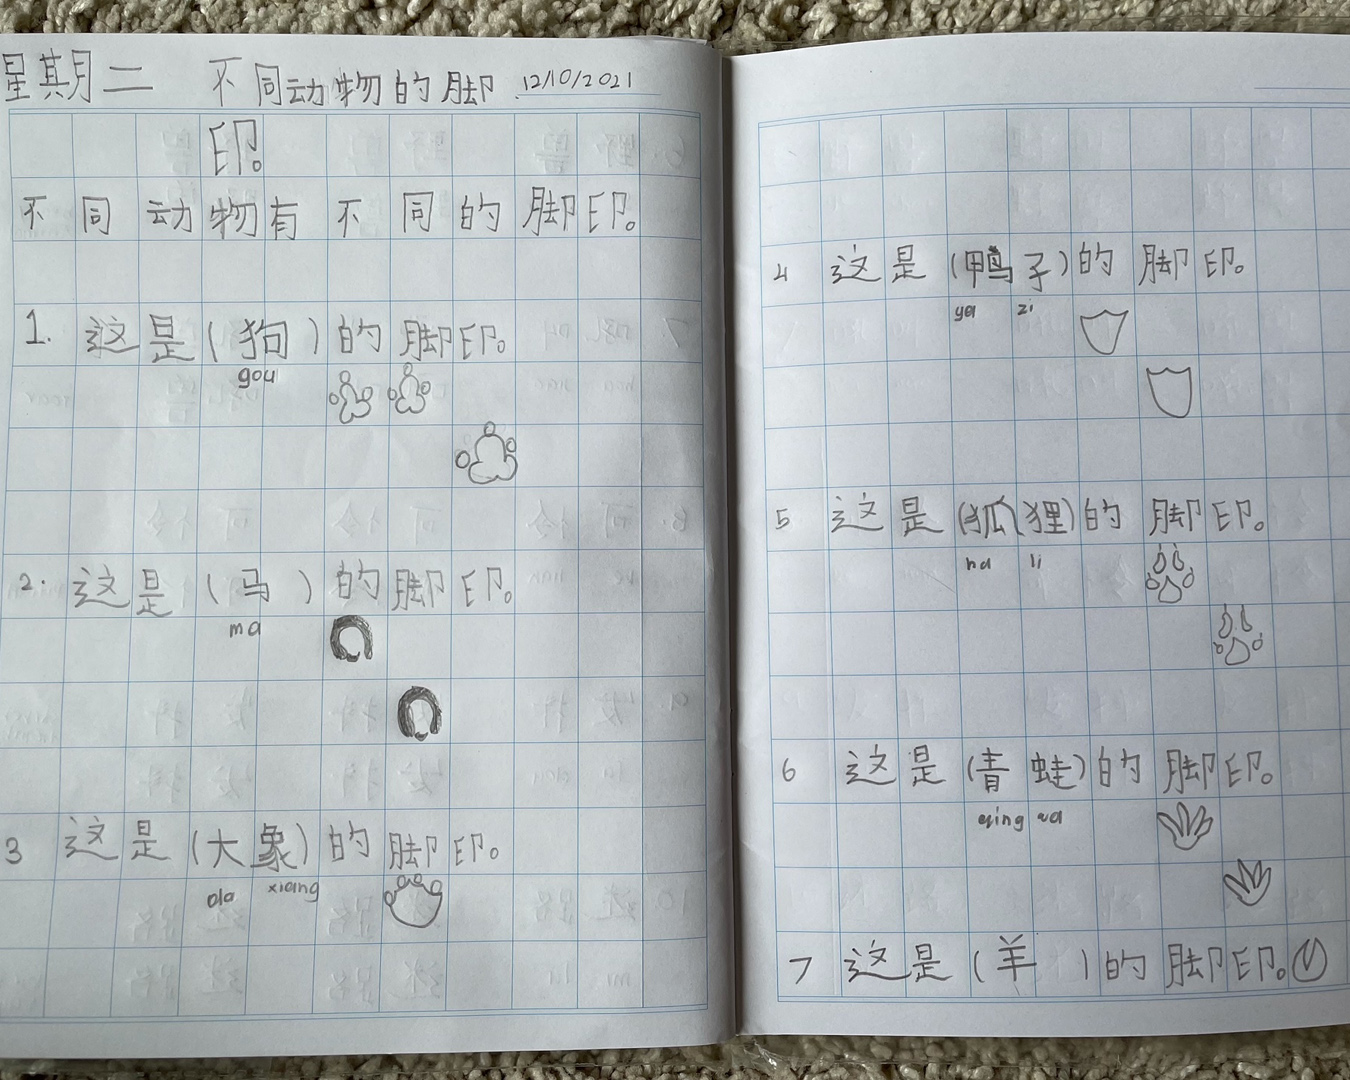 星期二 不同动物的脚 12/10/2021
印。
不同动物有不同的脚印。
1. 这是(狗)的脚印。
gou
2. 这是(马)的脚印。
ma
3 这是(大象)的脚印。
da xiang
4 这是(鸭子)的脚印。
ya zi
5 这是(狐狸)的脚印。
hu li
6 这是(青蛙)的脚印。
qing wa
7 这是(羊)的脚印。